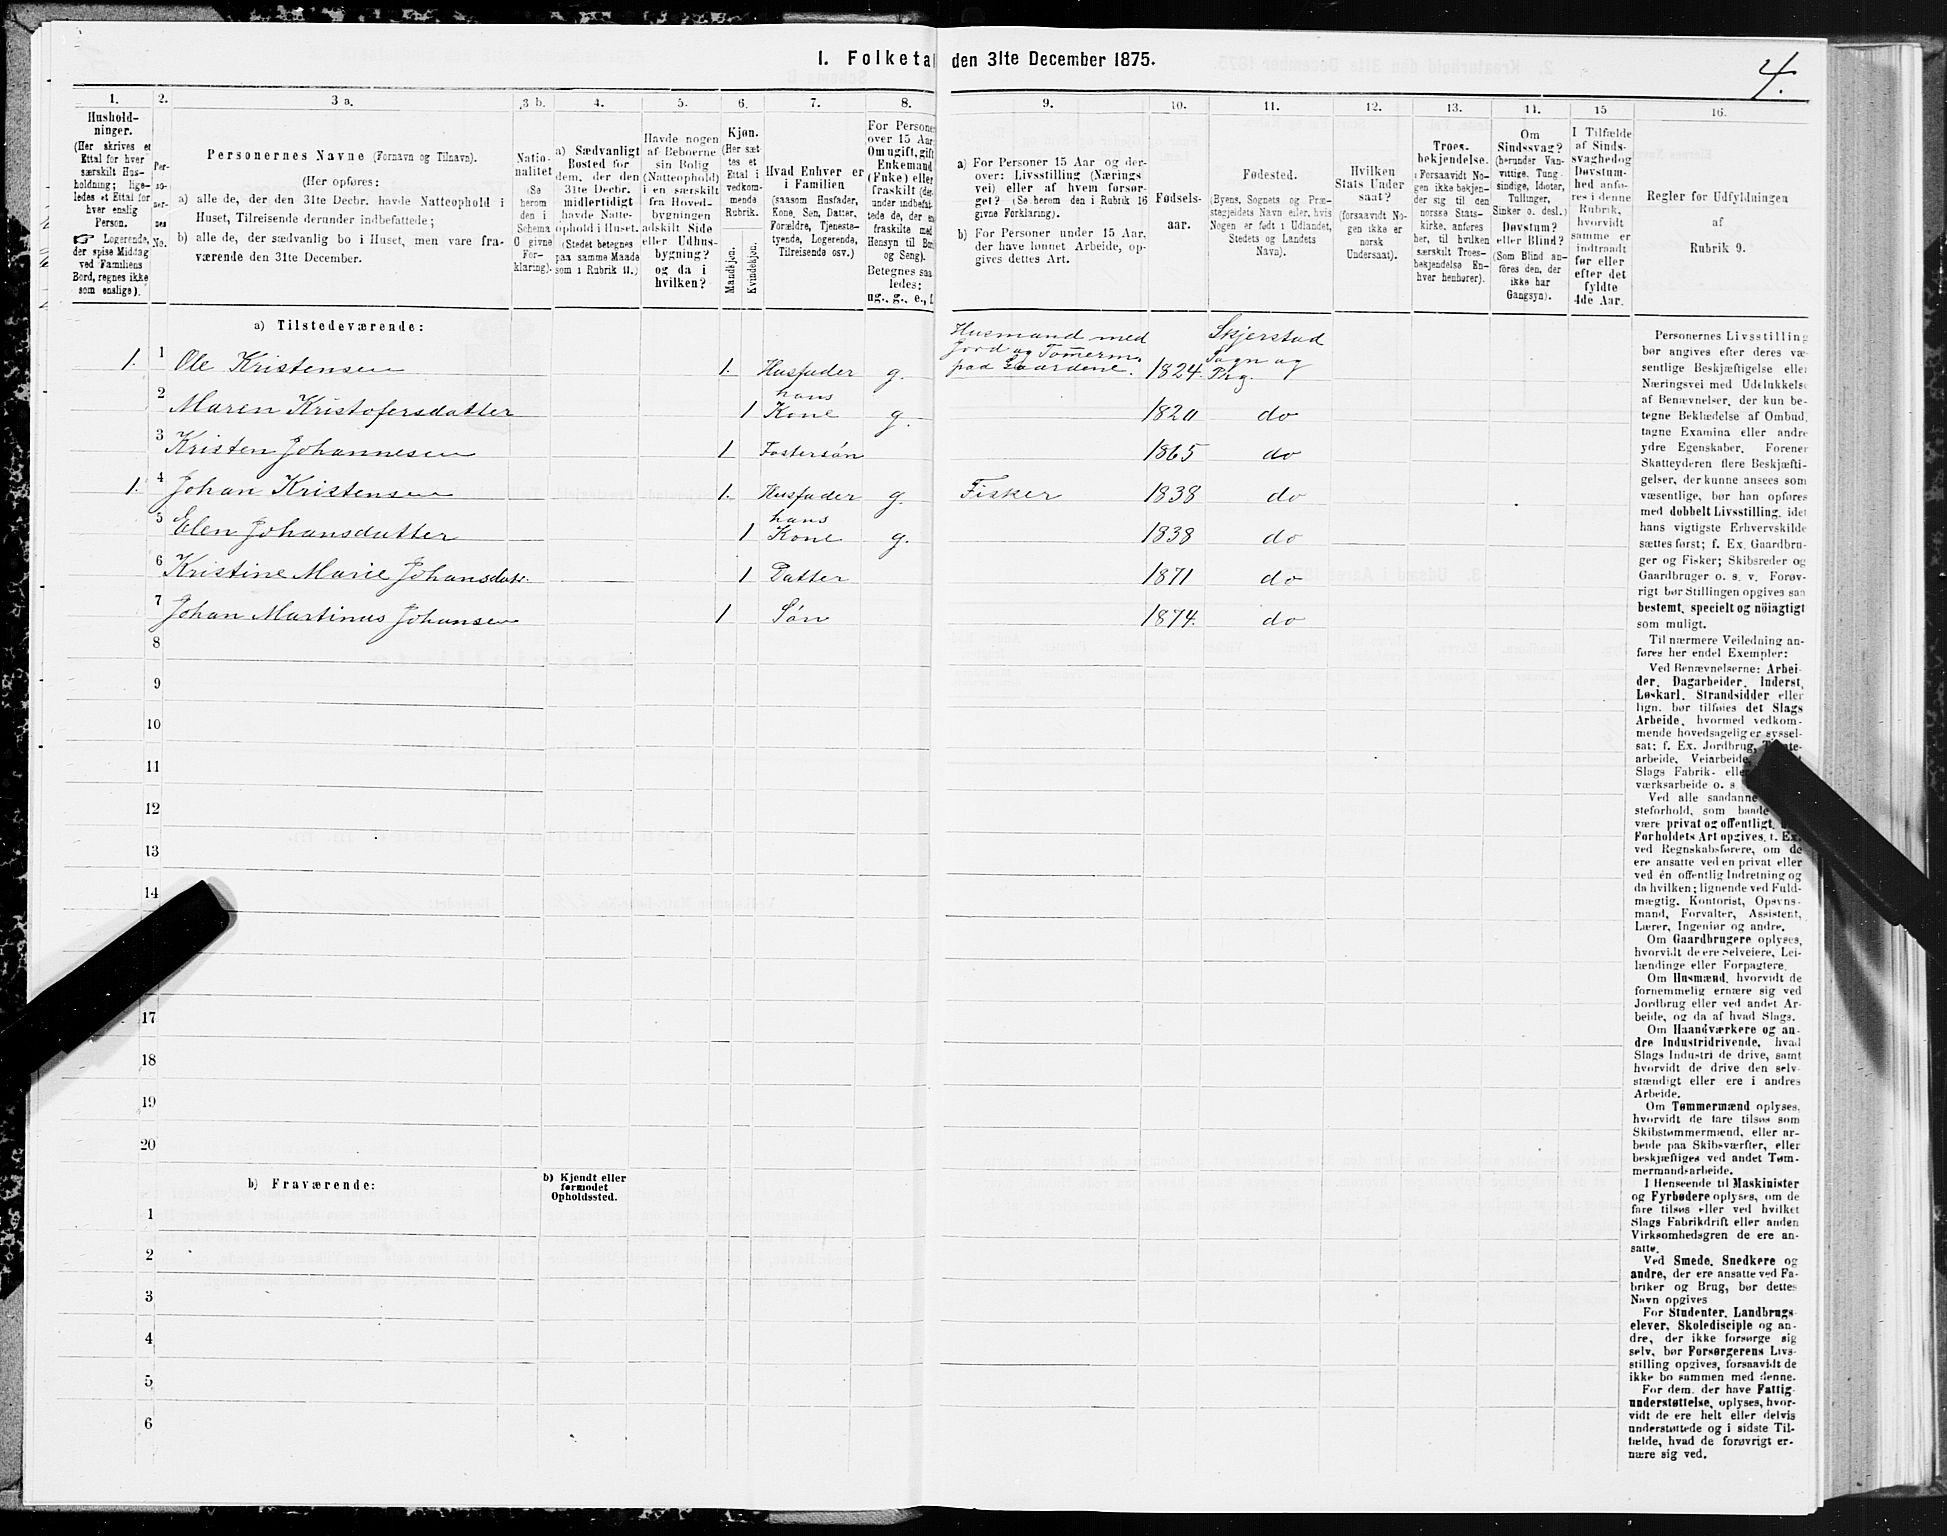 I. Folketal den 31te December 1875.
4.
1.
Hushold-
ninger.
(Her skrives et
Ettal for hver
særskilt Hus-
holdning; lige-
ledes et Ettal for
hver enslig
Person.
☞ Logerende,
der spise Middag
ved Familiens
Bord, regnes ikke
som enslige).
2.
Per-
so-
ner-
nes
No.
3 a.
Personernes Navne (Fornavn og Tilnavn).
(Her opføres:
a) alle de, der den 31te Decbr. havde Natteophold i
Huset, Tilreisende derunder indbefattede;
b) alle de, der sædvanlig bo i Huset, men vare fra-
værende den 31te December.
3 b.
Natio-
nalitet
(Se
herom
den i
Schema
C givne
For-
klaring).
4.
a) Sædvanligt
Bosted for
dem, der den
31te Decbr.
midlertidigt
havde Natte-
ophold i Huset.
(Stedet betegnes
paa samme Maade
som i Rubrik 11.)
5.
Havde nogen
af Beboerne
sin Bolig
(Natteophold)
i en særskilt
fra Hoved-
bygningen
adskilt Side
eller Udhus-
bygning?
og da i
hvilken?
6.
Kjøn.
(Her sæt-
tes et
Ettal i
vedkom-
mende
Rubrik.
Mandkjøn.
Kvindekjøn.
7.
Hvad Enhver er
i Familien
(saasom Husfader,
Kone, Søn, Datter,
Forældre, Tjeneste-
tyende, Logerende,
Tilreisende osv.)
8.
For Personer
over 15 Aar:
Om ugift, gift,
Enkemand
(Enke) eller
fraskilt (der-
under indbefat-
tede de, der ere
fraskilte med
Hensyn til Bord
og Seng).
Betegnes saa
ledes:
ug., g., e., f.
9.
a) For Personer 15 Aar og der-
over: Livsstilling (Nærings
vei) eller af hvem forsør-
get? (Se herom den i Rubrik 16
givne Forklaring).
b) For Personer under 15 Aar,
der have lønnet Arbeide, op-
gives dettes Art.
10.
Fødsels-
aar.
11.
Fødested.
(Byens, Sognets og Præ-
stegjeldets Navn eller, hvis
Nogen er født i Udlandet,
Stedets og Landets
Navn).
12.
Hvilken
Stats Under
saat?
(forsaavidt No-
gen ikke er
norsk
Undersaat).
13.
Troes-
bekjendelse.
(Forsaavidt No-
gen ikke bekjen-
der sig til den
norske Stats-
kirke, anføres
her, til hvilken
særskilt Troes-
bekjendelse En-
hver henhører).
14.
Om
Sindssvag?
(herunder Van-
vittige, Tung-
sindige, Idioter,
Tullinger,
Sinker o. desl.)
Døvstum?
eller Blind?
(Som Blind an-
føres den, der
ikke har
Gangsyn).
15
I Tilfælde
af Sinds-
svaghed og
Døvstum-
hed anfø-
res i denne
Rubrik,
hvorvidt
samme er
indtraadt
før eller
efter det
fyldte
4de Aar.
16.
Regler for Udfyldningen
af
Rubrik 9.
a) Tilstedeværende:
1. 1 Ole Kristensen 1. Husfader g. Husmand med Jord og Tømerm. paa Gaardene. 1824. Skjerstad Sogn og Prg.
2 Maren Kristofersdatter 1 hans Kone g. 1820 do
3 Kristen Johannesen 1 Fostersøn 1865 do
1. 4 Johan Kristensen 1. Husfader g. Fisker 1838 do
5 Elen Johansdatter 1 hans Kone g. 1838 do
6 Kristine Marie Johansdatr. 1 Datter 1871 do
7 Johan Martinus Johansen 1 Søn 1874. do
8
9
10
11
12
13
14
17
18
19
20
b) Fraværende:
b) Kjendt eller
formodet
Opholdssted.
1
2
3
4
5
6
Personernes Livsstilling
bør angives efter deres væ-
sentlige Beskjæftigelse eller
Næringsvei med Udelukkelse
af Benævnelser, der kun be-
tegne Beklædelse af Ombud,
tagne Examina eller andre
ydre Egenskaber. Forener
Skatteyderen flere Beskjæfti-
gelser, der kunne ansees som
væsentlige, bør han opføres
med dobbelt Livsstilling, idet
hans vigtigste Erhvervskilde
sættes først; f. Ex. Gaardbru-
ger og Fisker; Skibsreder og
Gaardbruger o. s. v. Forøv-
rigt bør Stillingen opgives saa
bestemt, specielt og nöiagtigt
som muligt.
Til nærmere Veiledning an-
føres her endel Exempler:
Ved Benævnelserne: Arbei-
der, Dagarbeider, Inderst,
Løskarl, Strandsidder eller
lign. bør tilføies det Slags
Arbeide, hvormed vedkom-
mende hovedsagelig er syssel-
sat; f. Ex. Jordbrug,
arbeide, Veiarbeide,
Slags Fabrik- eller
værksarbeide o. s
Ved alle saadanne
steforhold, som baade
være privat og offentligt,
Forholdets Art opgives, t. Ex.
ved Regnskabsførere, om de
ere ansatte ved en privat eller
ved én offentlig Indretning og
da hvilken; lignende ved Fuld-
mægtig, Kontorist, Opsyns-
mand, Forvalter, Assistent,
Lærer, Ingeniør og andre.
Om Gaardbrugere oplyses,
hvorvidt de ere Selveiere, Lei-
lændinge eller Forpagtere.
Om Husmænd, hvorvidt de
fornemmelig ernære sig ved
Jordbrug eller ved andet Ar-
beide, og da af hvad Slags.
Om Haandværkere og an-
dre Industridrivende, hvad
Slags Industri de drive, samt
hvorvidt de drive den selv-
stændigt eller ere i andres
Arbeide.
Om Tømmermænd oplyses,
hvorvidt de fare tilsøs som
Skibstømmermænd, eller ar-
beide paa Skibsværfter, eller
beskjæftiges ved andet Tøm-
mermandsarbeide.
I Henseende til Maskinister
og Fyrbødere oplyses, om de
fare tilsøs eller ved hvilket
Slags Fabrikdrift eller anden
Virksomhedsgren de ere an-
satte.
Ved Smede, Snedkere og
andre, der ere ansatte ved Fa-
briker og Brug, bør dettes
Navn opgives
For Studenter, Landbrugs-
elever, Skoledisciple og an-
dre, der ikke forsørge sig
selv, bør Forsørgerens Livs-
stilling opgives, forsaavidt de
ikke bo sammen med denne.
For dem, der have Fattig-
understøttelse, oplyses, hvor-
vidt de ere helt eller delvis
understøttede og i sidste Til-
fælde, hvad de forøvrigt er-
nære sig ved.